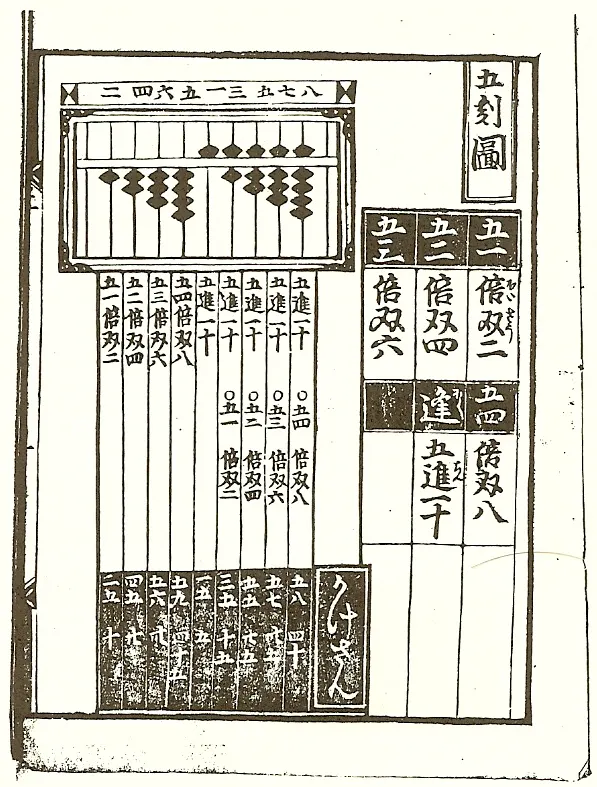 五刻圖
五一 倍双二
五二 倍双四
五三 倍双六
五四 倍双八
逢 五進一十
八七五三一九六四二
五進一十 〇五四 倍双八
五進一十 〇五三 倍双六
五進一十 〇五二 倍双四
五進一十 〇五一 倍双二
五進一十
五四倍双八
五三倍双六
五二倍双四
五一倍双二
かけさん
五八 四十
五七 卅五
五五 廿五
三五 十五
一五 五
五九 四十五
五六 卅
四五 廿
二五 十